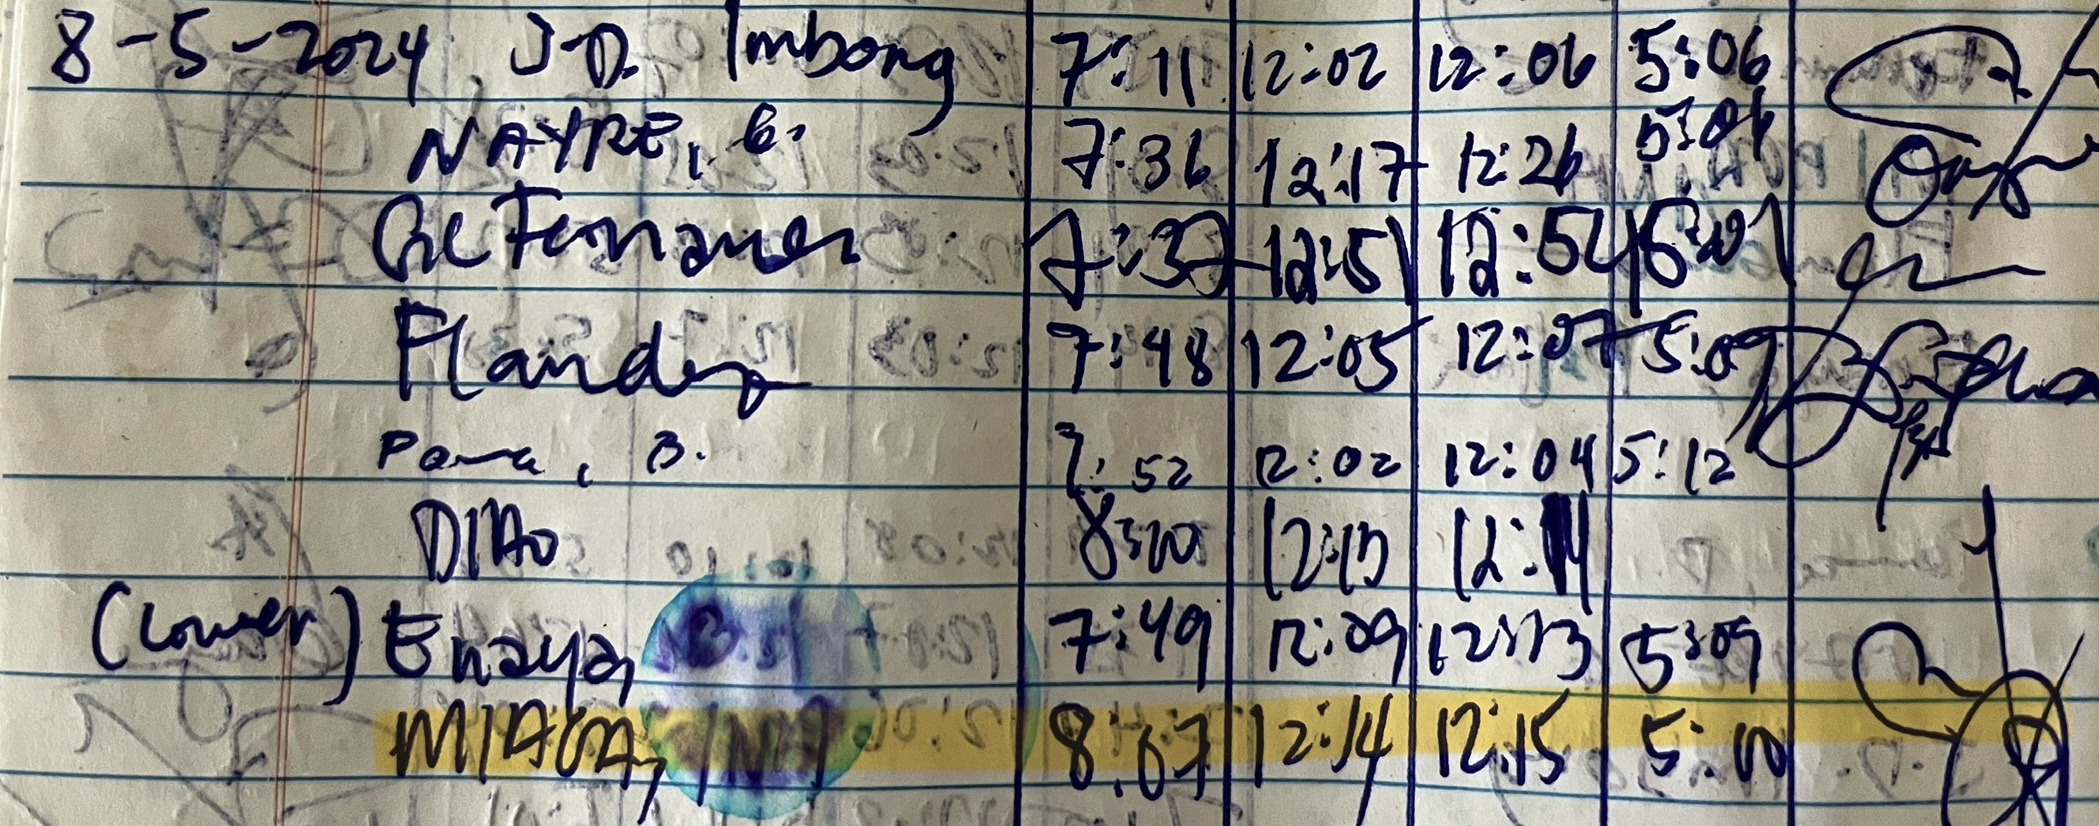 8-5-2024 J.D. Imbong 7:11 12:02 12:06 5:06
NAYRE, G. 7:36 12:17 12:26 5:06
7:37 12:51 12:54
Flandez 7:48 12:05 12:07 5:09
Pama, B. 7:52 12:02 12:04 5:12
8:10 12:13 12:14
(Lower) Enaya, 7:49 12:09 12:13 5:09
MIAGA, INA 8:07 12:14 12:15 5:10